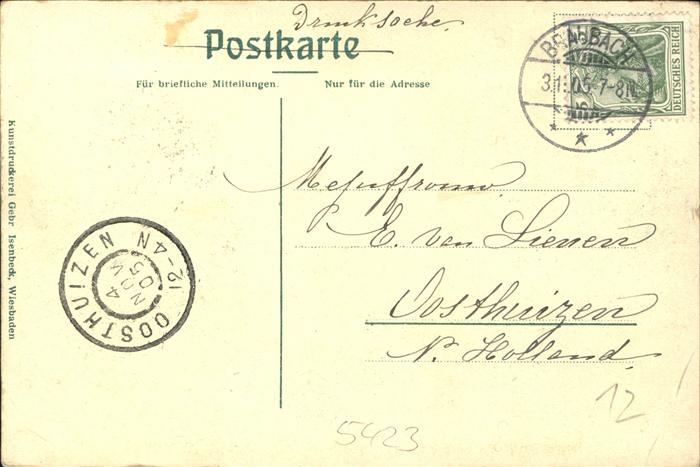 Drucksache.
Postkarte
Für briefliche Mitteilungen.
Nur für die Adresse
DEUTSCHES REICH
3.11.05.7-8N.
Kunstdruckerei Gebr Isenbeck, Wiesbaden
OOSTHUIZEN
12-4N
4
NOV
05
Mejuffrouw
E. van Lienen
Oosthuizen
N. Holland.
12
5423